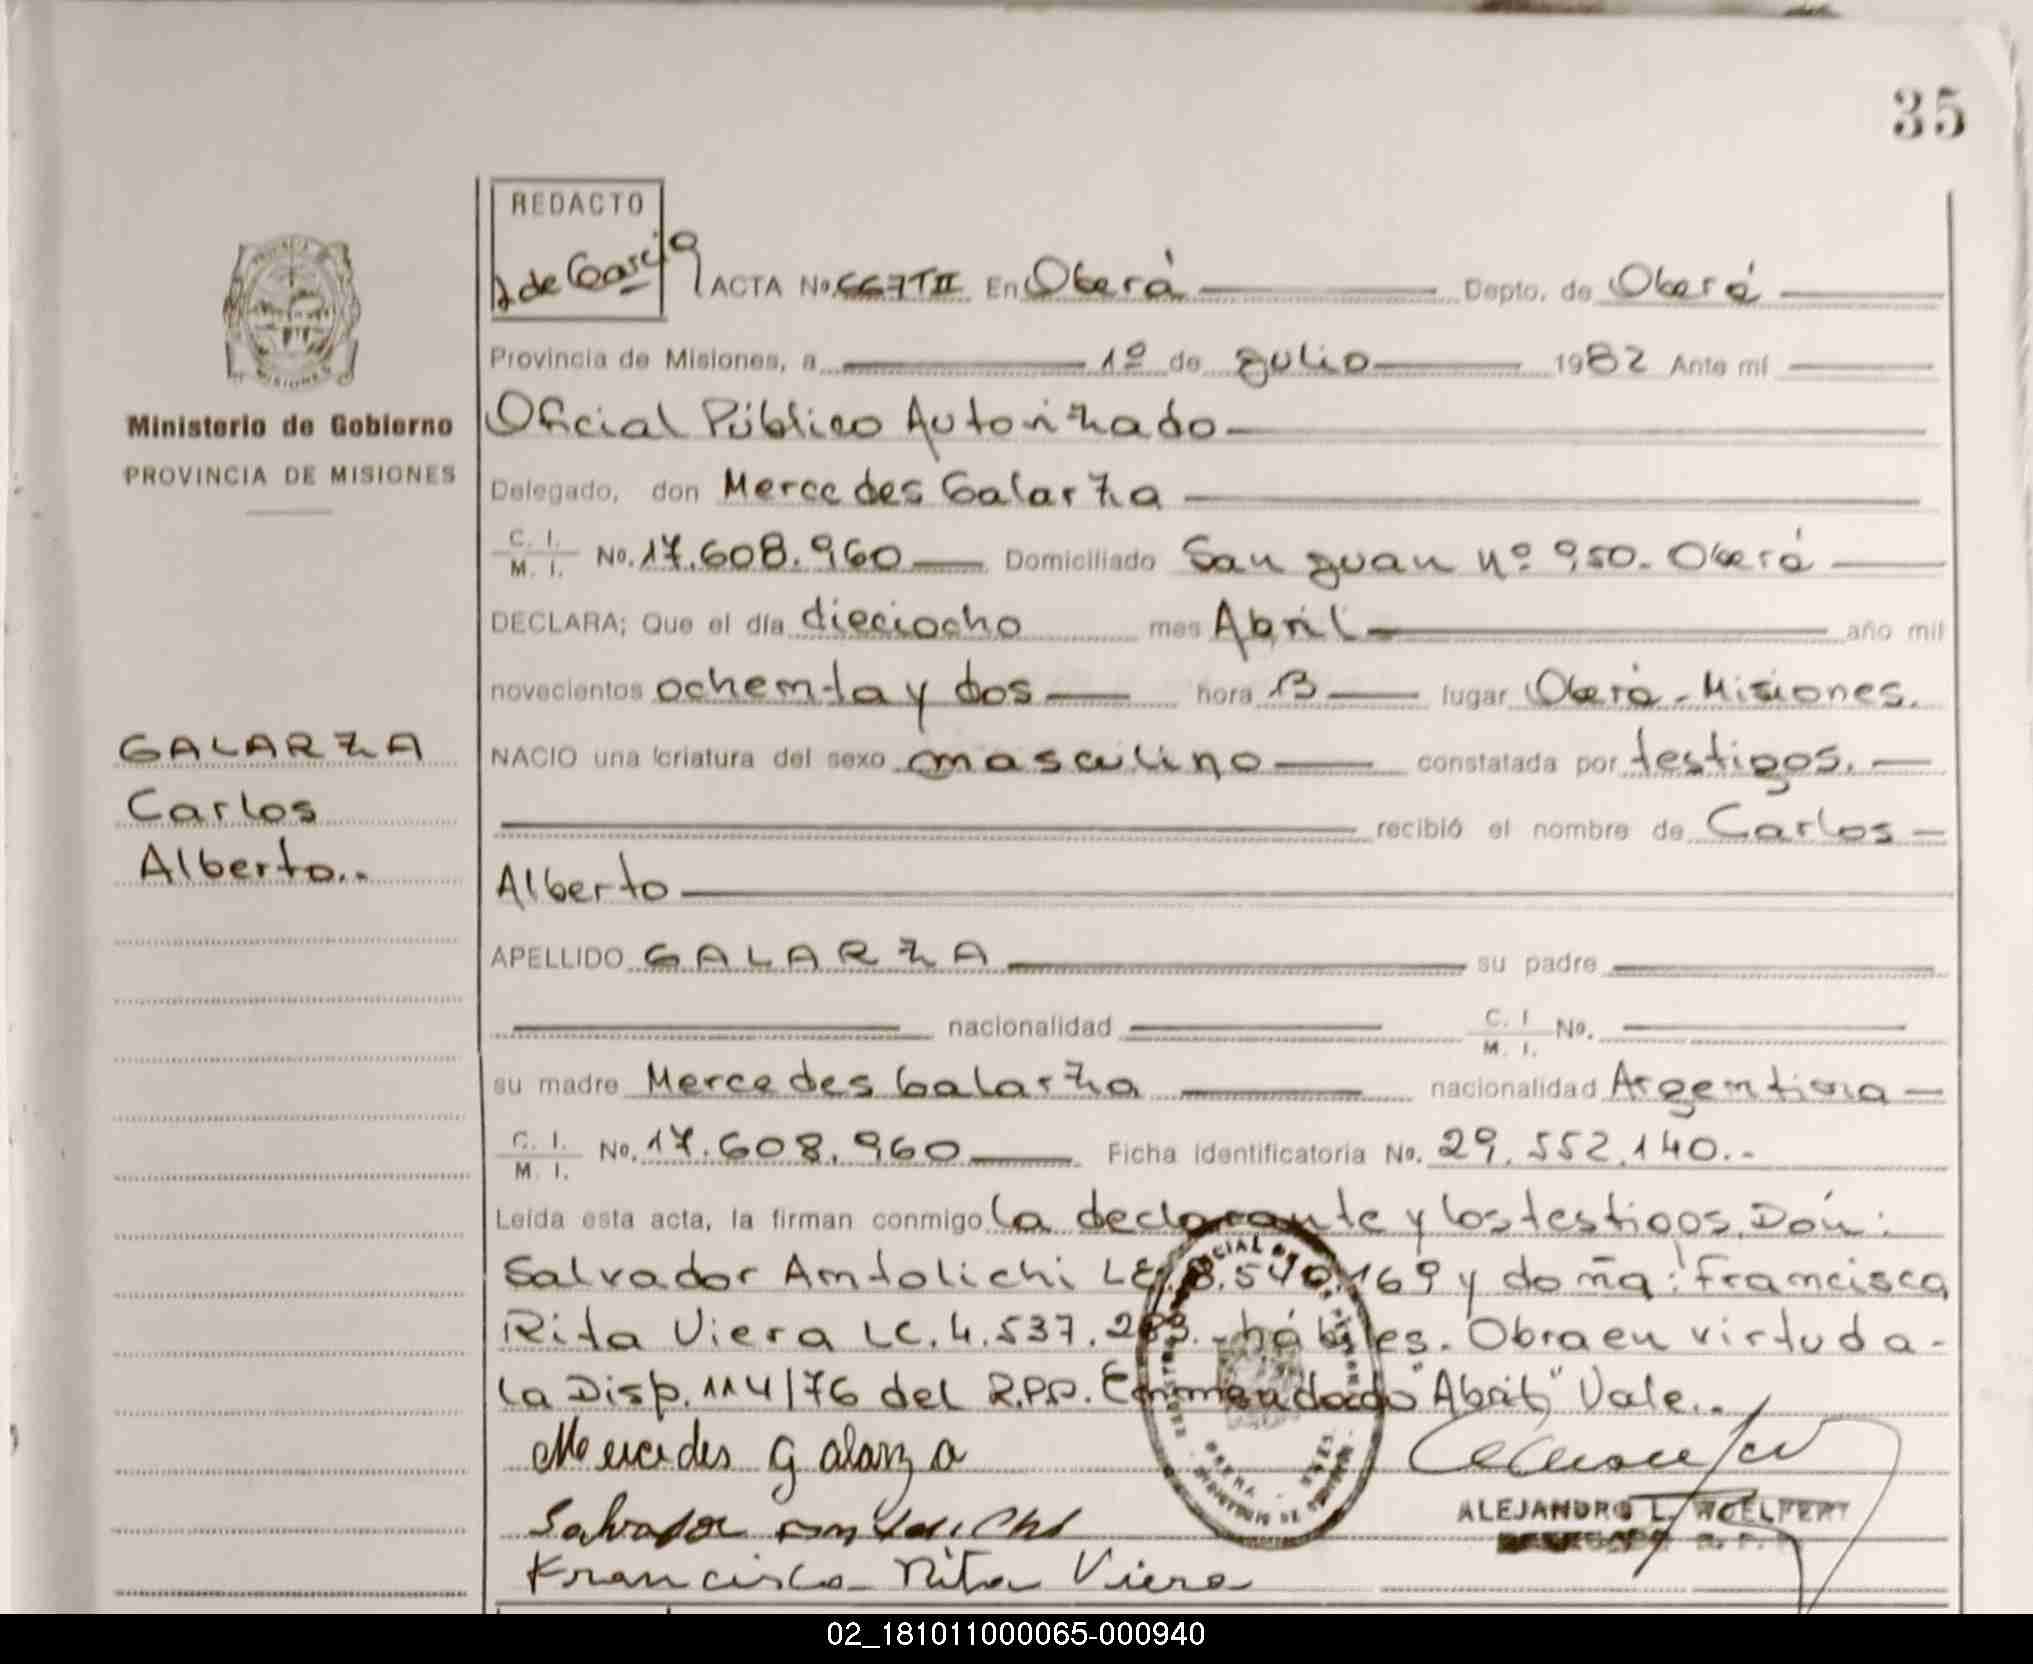 35
REDACTO
de Garcia
ACTA No. 667 T II En Oberá Depto. de Oberá
Provincia de Misiones, a 1º de Julio 1982 Ante mí
Oficial Público Autorizado
Ministerio de Gobierno
PROVINCIA DE MISIONES
Delegado, don Mercedes Galarza
C. I.
M. I. No. 17.608.960 Domiciliado San Juan Nº 950. Oberá
DECLARA; Que el día dieciocho mes Abril año mil
novecientos ochenta y dos hora 13 lugar Oberá - Misiones.
GALARZA
Carlos
Alberto..
NACIO una criatura del sexo masculino constatada por testigos.
recibió el nombre de Carlos
Alberto
APELLIDO GALARZA su padre
nacionalidad C. I.
M. I. No.
su madre Mercedes Galarza nacionalidad Argentina
C. I.
M. I. No. 17.608.960 Ficha identificatoria No. 29.552.140.-
Leída esta acta, la firman conmigo la declarante y los testigos, Dón:
Salvador Antolichi LE. 8.540.169 y doña: Francisca
Rita Viera LC. 4.537. hábiles. Obra en virtud a
la Disp. 114/76 del R.P.P. Enmendado "Abril" Vale..
Mercedes Galarza
Salvador Antolichi
ALEJANDRO L. WOELFERT
DELEGADO R. P. P.
Francisca Rita Viera
02_181011000065-000940